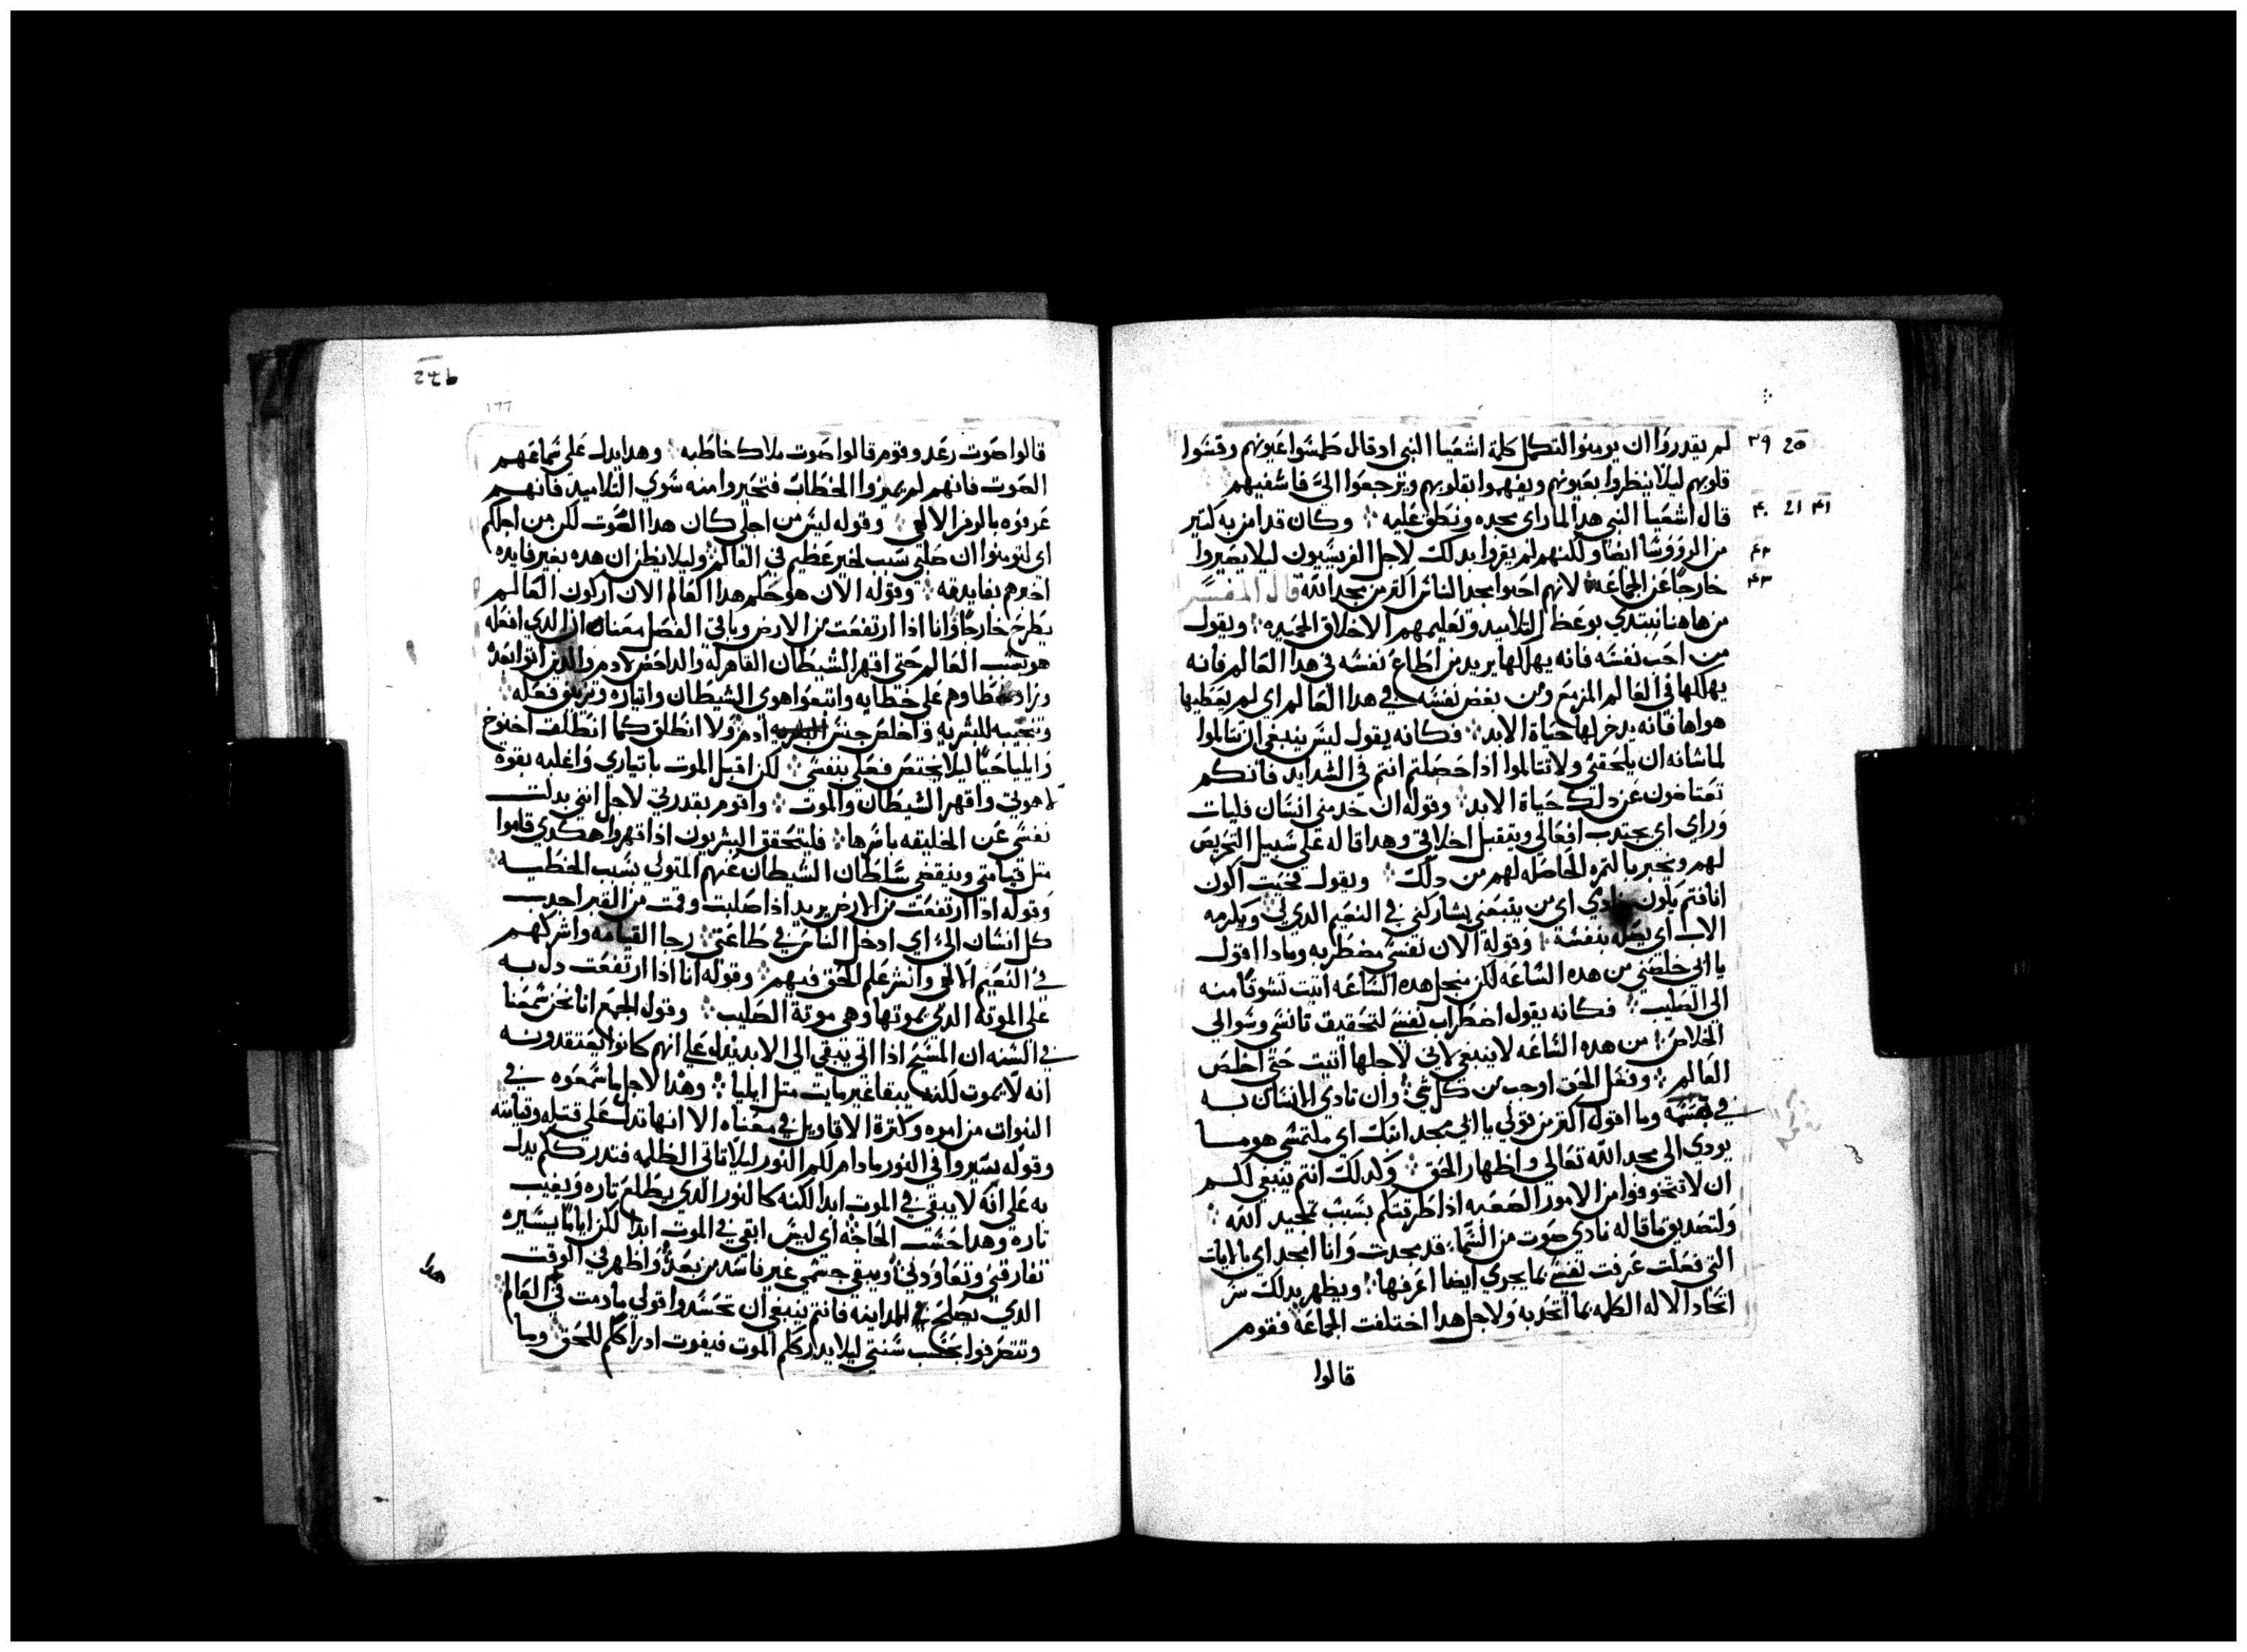 لم يقدروا ان يومنوا لتكمل كلمة اشعيا النبي اد قال طمسوا عيونهم وقسوا
قلوبهم ليلا ينظروا بعيونهم ويفهموا بقلوبهم ويرجعوا الي فاشفيهم
قال اشعيا النبي هدا لما راي مجده ونطق عليه وكان قد امن به كتير
من الرووسا ايضا ولكنهم لم يقروا بدلك لاجل الفريسيون ليلا يصيروا
خارجا عن الجماعه لانهم احبوا مجد الناس اكتر من مجد الله قال المفسر
من هاهنا يبتدي بوعظ التلاميد وتعليمهم الاخلاق الحميده ويقول
من احب نفسه فانه يهلكها يريد من اطاع نفسه في هدا العالم فانه
يهلكها في العالم المزمع ومن بغض نفسه في هدا العالم اي لم يعطيها
هواها فانه يدخر لها حياة الابد فكانه يقول ليس ينبغي ان تتالموا
لما شانه ان يلحقني ولا تتالموا ادا حصلتم انتم في الشدايد فانكم
تعتاضون عن دلك حياة الابد وقوله ان خدمني انسان فليات
وراي اي يجتدب افعالي ويتقبل اخلاقي وهدا قاله علي سبيل التحريص
لهم ويخبر بالتمره الحاصله لهم من دلك ويقول فحيت اكون
انا فتم يكون خادمي اي من يتبعني يشاركني في النعيم الدي لي ويكرمه
الاب اي يصله بنفسه وقوله الان نفسي مضطربه ومادا اقول
يا ابي خلصني من هده الساعه لكن من اجل هده الساعه اتيت تشوقا منه
الي الصليب فكانه يقول اضطراب نفسي لتحقيق تانسي وسوالي
الخلاص من هده الساعه لا ينبغي لاني لاجلها اتيت حتي اخلص
العالم وفعل الحق اوجب من كل شي وان تادي الانسان به
في جسمه وما اقول اكتر من قولي يا ابي مجد ابنك اي ملتمسي هو ما
يودي الي مجد الله تعالي واظهار الحق ولدلك انتم ينبغي لكم
ان لا تتخوفوا من الامور الصعبه ادا طرقتكم بسبب تمجيد الله
ولتصديق ما قاله نادي صوت من السما قد مجدت وانا امجد اي بالايات
التي فعلت عرفت نفسي بما يجري ايضا اعرفها ويظهر بدلك سر
اتحاد الاله الكلمه بما اتحد به ولاجل هدا اختلفت الجماعه فقوم
قالوا
قالوا صوت رعد وقوم قالوا صوت ملاك خاطبه وهدا يدل علي سماعهم
الصوت فانهم لم يميزوا الخطاب فتحيروا منه سوي التلاميد فانهم
عرفوه بالرمز الالهي وقوله ليس من اجلي كان هدا الصوت لكن من اجلكم
اي لتومنوا ان صلبي سبب لخير عظيم في العالم وليلا يظن ان هده بغير فايده
اخبرهم بفايدته وقوله الان هو حكم هدا العالم الان اركون العالم
يطرح خارجا وانا ادا ارتفعت من الارض وباقي الفصل معناه ان الدي افعله
هو بسبب العالم حتي اقهر الشيطان القاهر له والداحض لادم والدين اتوا بعده
وزاد خطاوهم علي خطايه واتبعوا هوي الشيطان وايثاره وتزيين فعله
وتحبيبه للشر به واخلص جنس ادم ولا انطلق كما انطلقت اخنوخ
وايليا حيا ليلا يختص فعلي بنفسي لكن اقبل الموت باتياري واغلبه بقوة
لاهوتي واقهر الشيطان والموت واقوم بقدرتي لاجل انني بدلت
نفسي عن الخليقه باسرها فليتحقق البشريون ادا قهروا هكدي قاموا
متل قيامتي وينقضي سلطان الشيطان عنهم المتولي بسبب الخطيه
وقوله ادا ارتفعت من الارض يريد ادا صلبت وقمت من القبر اجدب
كل انسان الي اي ادخل الناس في طاعتي رجا القيامه واشركهم
في النعيم الالهي وانشر علم الحق فيهم وقوله انا ادا ارتفعت دل به
علي الموته الدي يموتها وهي موتة الصليب وقول الجمع انا نحن سمعنا
في السنه ان المسيح ادا اتي يبقي الي الابد يدل علي انهم كانوا يعتقدونه
انه لا يموت لكنه يبقا غير مايت متل ايليا وهدا لاجل ما سمعوه في
النبوات من امره وكترة الاقاويل في معناه الا انها تدل علي قتله وقيامته
وقوله سيروا في النور ما دام لكم النور ليلا تاتي الظلمه فتدرككم يدل
به علي انه لا يبقي في الموت ابدا لكنه كالنور الدي يطلع تاره ويغيب
تاره وهدا حسب الحاجه اي ليس ابقي في الموت ابدا لكن اياما يسيره
تفارقني وتعاودني ويبقي جسمي غير فاسد من بعده واظهر في الوقت
الدي يصلح في المداينه فانتم ينبغي ان تحسدوا قولي ما دمت في العالم
وتتصرفوا بحسب سنتي ليلا يدارككم الموت فيفوت ادراككم للحق وبما